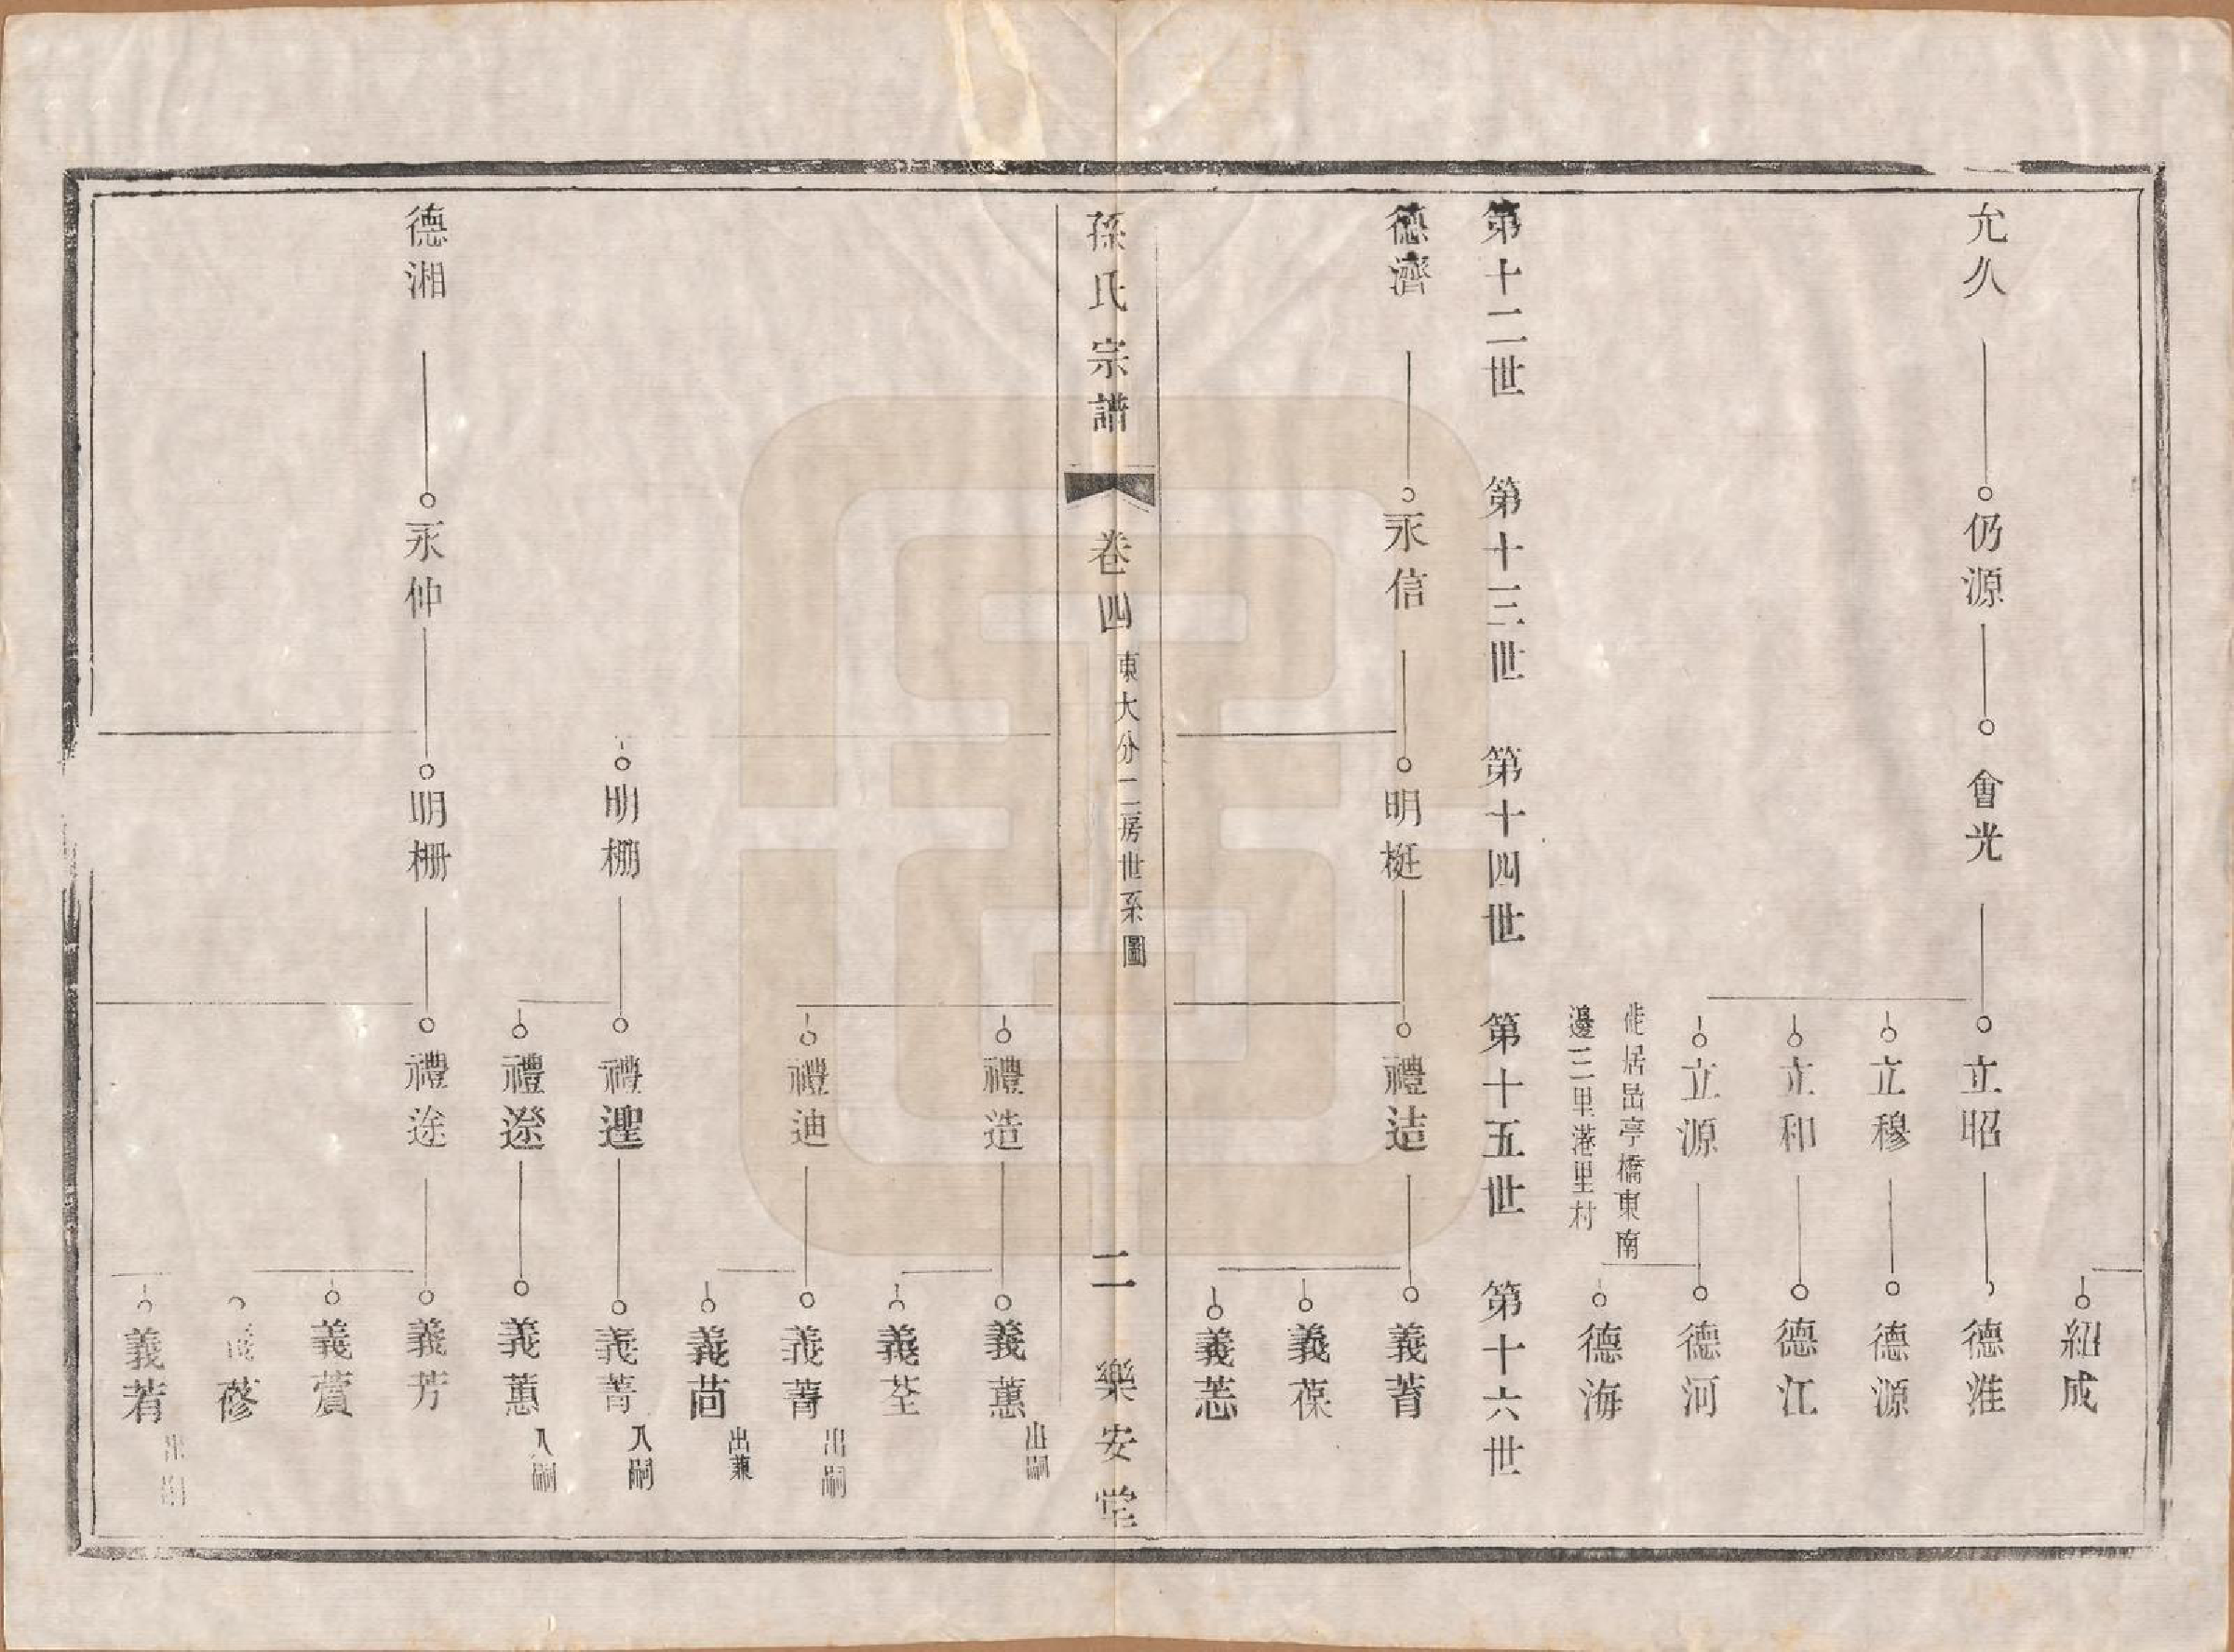 紹成
允久 仍源 會光 立昭 德淮
立穆 德源
立和 德江
立源 德河
德海
徙居嵒亭橋東南
邊三里港里村
第十二世 第十三世 第十四世 第十五世 第十六世
德濟 永信 明梃 禮迼 義莦
義葆
義莣
孫氏宗譜 卷四 東大分二房世系圖 二 樂安堂
禮造 義蕙 出嗣
義荃
禮迪 義菁 出嗣
義茴 出兼
明棚 禮逞 義菁 入嗣
禮邆 義蕙 入嗣
德湘 永仲 明柵 禮途 義芳
義蕡
義蓚
義若 出嗣